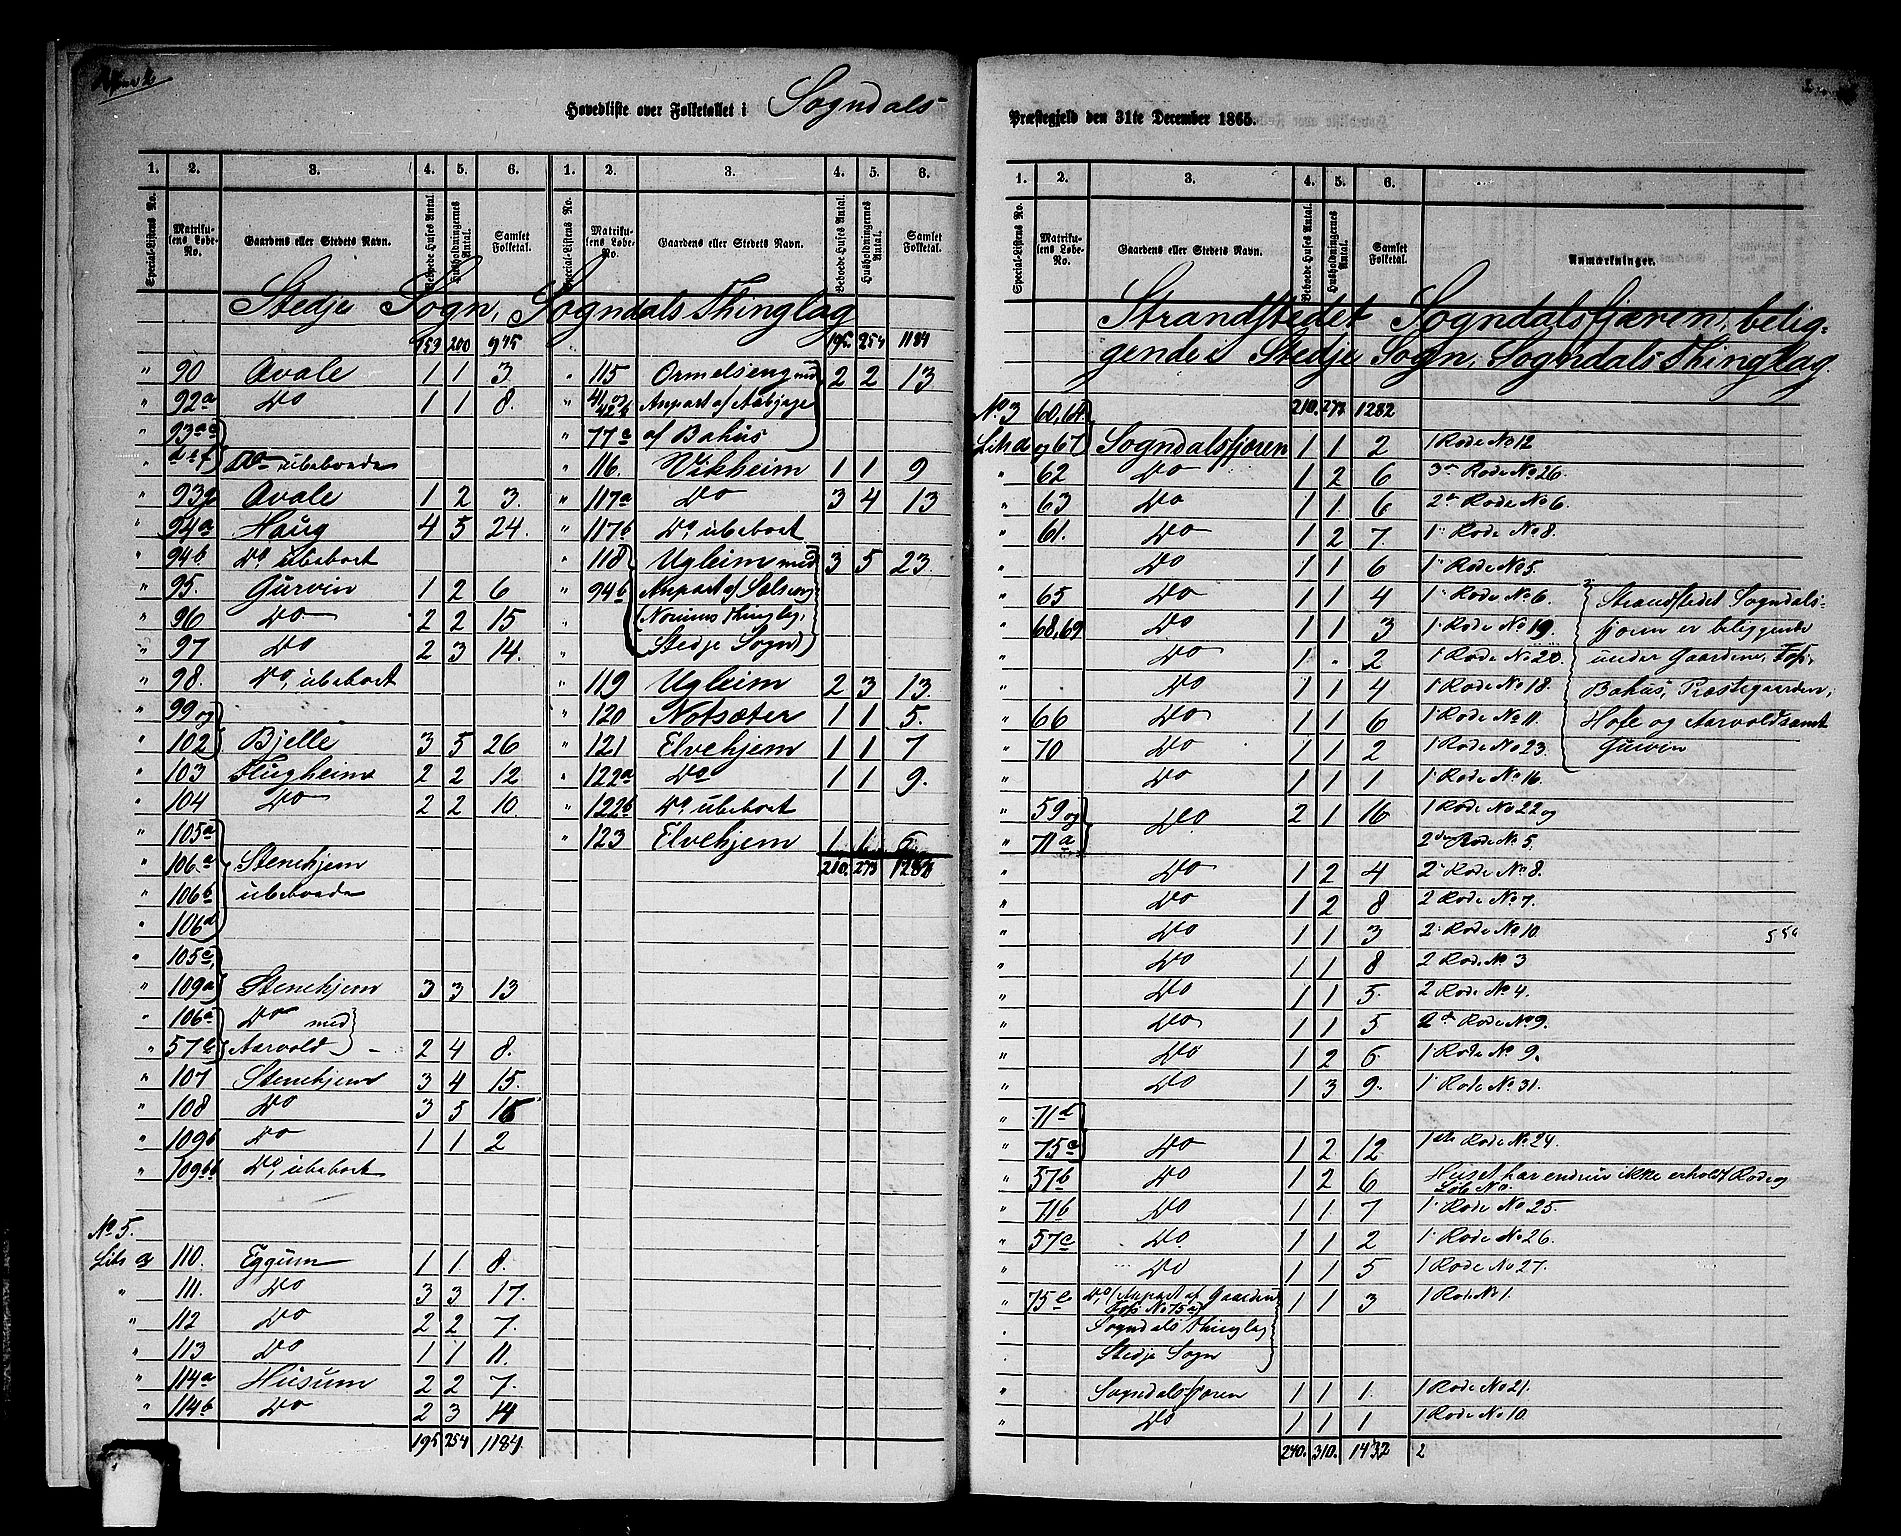 Hovedliste over Folketallet i Sogndals-
1. 2. 3. 4. 5. 6.
Special-Listens No. Matrikulens Løbe-No. Gaardens eller Stedets Navn. Beboede Huses Antal. Husholdningernes Antal. Samlet Folketal.
Stedje Sogn, Sogndals Thinglag
159 200 975
" 90 Avale 1 1 3.
" 92a Do 1 1 8.
" 93a
" Do ubeboede
" 93g Avale 1 2 3.
" 94a Haug 4 5 24.
" 94b Do, ubeboet
" 95. Gurvin 1 2 6
" 96 Do 2 2 15
" 97 Do 2 3 14.
" 98. Do, ubeboet
" 99 og
" 102 Bjelle 3 5 26
" 103 Flugheim 2 2 12
" 104 Do 2 2 10.
" 105a
" 106a Stenehjem
" 106b ubeboede
" 106d
" 105c,
" 109a Stenehjem 3 3 13
" 106a Do med
" 57e Aarvold - 2 4 8.
" 107 Stenehjem 3 4 15.
" 108 Do 3 5 16
" 109b Do 1 1 2
" 109bb Do, ubeboet
No 5.
Litr a 110. Eggum 1 1 8.
" 111. Do 3 3 17.
" 112 Do 2 2 7.
" 113 Do 1 1 11.
" 114a Husum 2 2 7.
" 114b Do 2 3 14
195 254 1184
1. 2. 3. 4. 5. 6.
Special-Listens No. Matrikulens Løbe-No. Gaardens eller Stedets Navn. Beboede Huses Antal. Husholdningernes Antal. Samlet Folketal.
195. 254 1184
" 115 Ormelseng med 2 2 13
" 41 og 42b Anpart af Aabjøge
" 77c af Bahus
" 116. Vikheim 1 1 9
" 117a Do 3 4 13
" 117b Do, ubeboet
" 118 Ugleim med 3 5 23
" 94b Anpart af Solseng
" (Norums Thinglag,
" Stedje Sogn)
" 119 Ugleim 2 3 13.
" 120 Notsæter 1 1 5.
" 121 Elvehjem 1 1 7
" 122a Do 1 1 9.
" 122b Do, ubeboet
" 123 Elvehjem 1 1 6
210. 273 1282
Præstegjeld den 31te December 1865.
1. 2. 3. 4. 5. 6.
Special-Listens No. Matrikulens Løbe-No. Gaardens eller Stedets Navn. Beboede Huses Antal. Husholdningernes Antal. Samlet Folketal. Anmærkninger.
Strandstedet Sogndalsfjæren, belig-
gende i Stedje Sogn, Sogndals Thinglag.
No 3 60, 64 210. 273 1282
Litr a og 67 Sogndalsfjæren 1 1 2 1 Rode No 12
" 62 Do 1 2 6 3die Rode No 26.
" 63 Do 1 1 6 2 Rode No 6.
" 61. Do 1 2 7 1 Rode No 8.
" Do 1 1 6 1 Rode No 5.
" 65 Do 1 1 4 1 Rode No 6. Strandstedet Sogndals-
" 68, 69 Do 1 1 3 1 Rode No 19. fjæren er beliggende
" Do 1 - 2 1 Rode No 20. under Gaardene, Fos,
" Do 1 1 4 1 Rode No 18. Bahus, Præstegaarden,
" 66 Do 1 1 6 1 Rode No 11. Hofe og Aarvold samt
" 70 Do 1 1 2 1 Rode No 23. Gurvin
" Do 1 1 1 1 Rode No 16.
" 59 og Do 2 1 16 1 Rode No 22 og
" 71a 2den Rode No 5.
" Do 1 2 4 2 Rode No 8.
" Do 1 2 8 2 Rode No 7.
" Do 1 1 3 2 Rode No 10.
" Do 1 1 8 2 Rode No 3
" Do 1 1 5. 2 Rode No 4.
" Do 1 1 5 2d Rode No 9.
" Do 1 2 6. 1 Rode No 9.
" Do 1 3 9. 1 Rode No 31.
" 71d
" 75c Do 1 2 12 1ste Rode No 24.
" 57b Do 1 2 6 Huset har endnu ikke erholdt Rode og
Løb No.
" 71b Do 1 1 7 1 Rode No 25.
" 57c Do 1 1 2 1 Rode No 26.
" Do 1 1 5 1 Rode No 27.
" 75e Do, (Anpart af Gaarden 1 1 3 1 Rode No 1.
Fos No 75a)
Sogndals Thinglag
Stedje Sogn
" Sogndalsfjæren 1 1 1. 1 Rode No 21.
" Do 1 1 1 1 Rode No 10.
240. 310. 1432 2